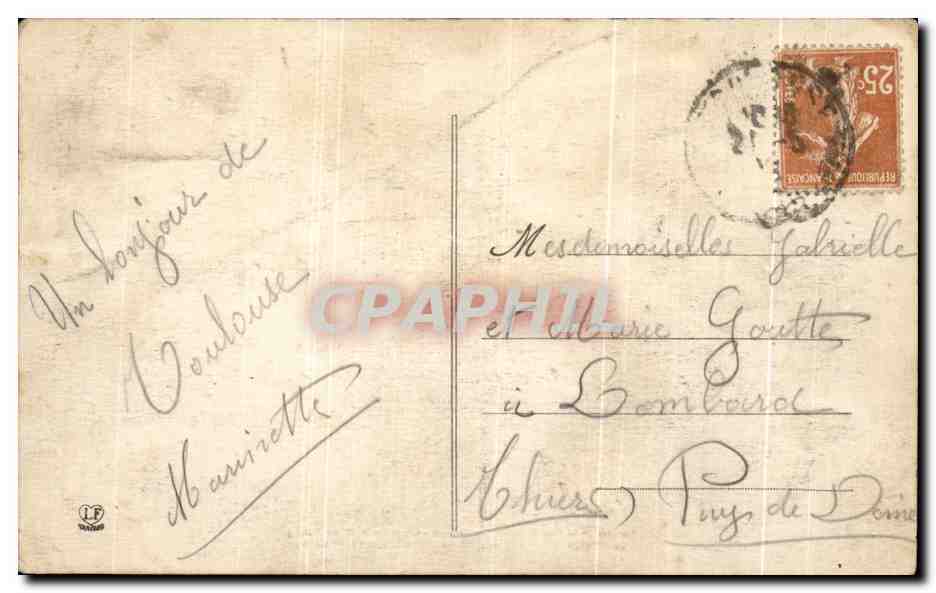 Un bonjour de
Toulouse
Marinette
Mesdemoiselles Gabrielle
et Marie Goutte
à Lombard
Thiers) Puys de Dôme
25c
RÉPUBLIQUE FRANÇAISE
LF
CPAPHIL